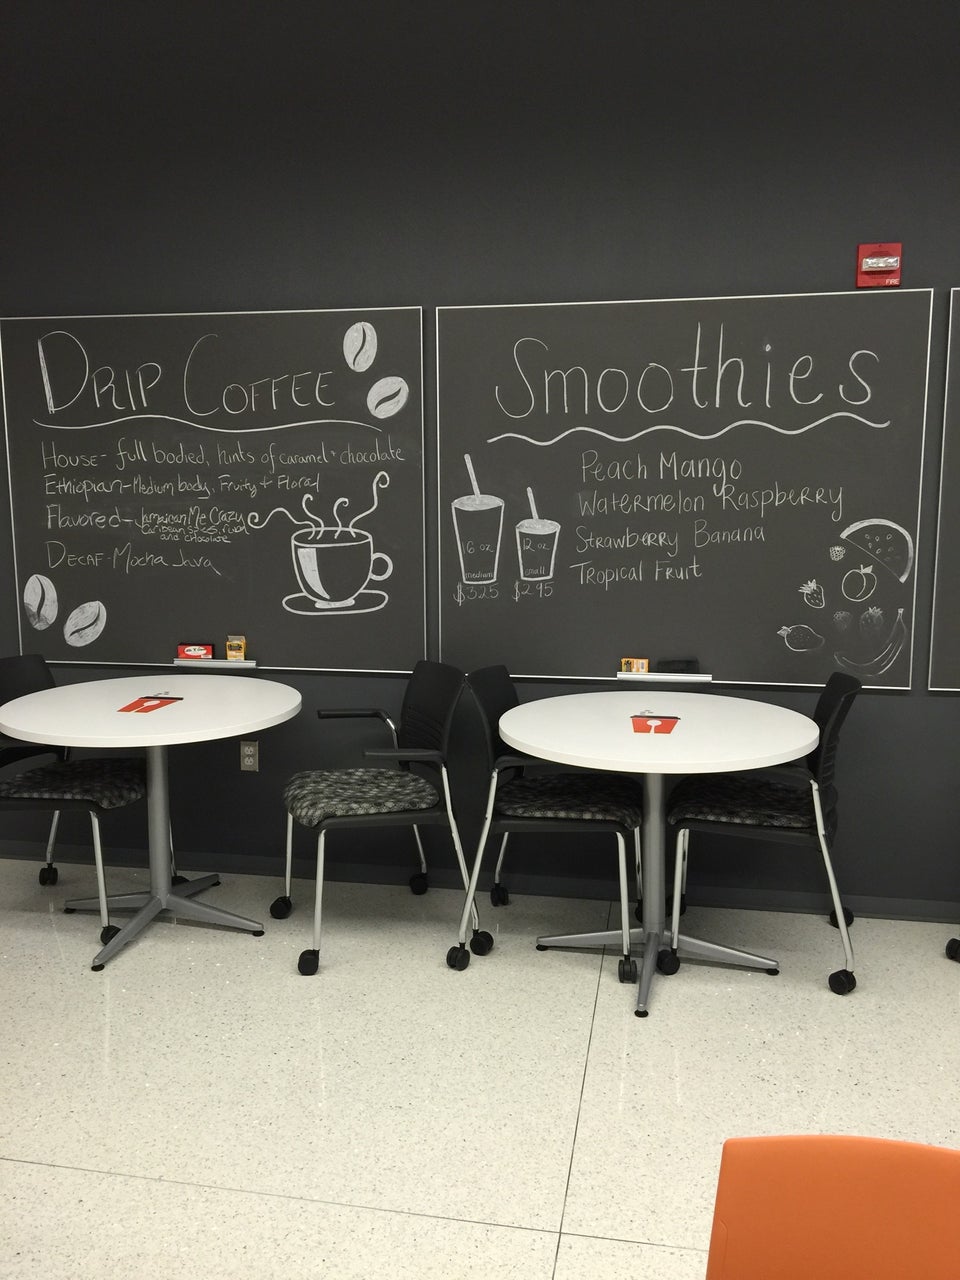 DRIP COFFEE
House- full bodied, hints of caramel + chocolate
Ethiopian-Medium body, Fruity + Floral
Flavored- Jamaican Me Crazy
Caribbean spices, rum
and chocolate
DECAF-Mocha Java
Smoothies
Peach Mango
Watermelon Raspberry
Strawberry Banana
Tropical Fruit
16 oz
medium
$3.25
12 oz
small
$2.95
FIRE